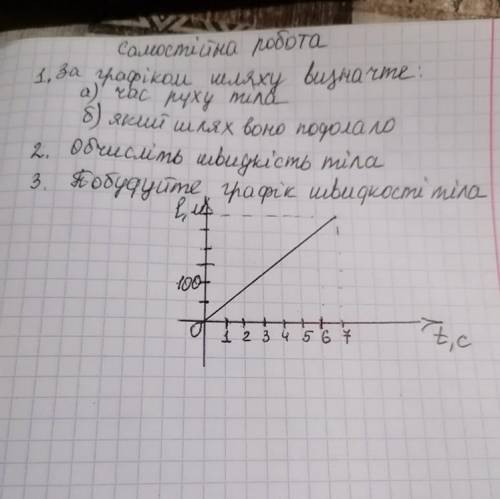 Самостійна робота
1. За графіком шляху визначте:
а) час руху тіла
б) який шлях воно подолало
2. Обчисліть швидкість тіла
3. Побудуйте графік швидкості тіла
l, м
100
0 1 2 3 4 5 6 7
t, c